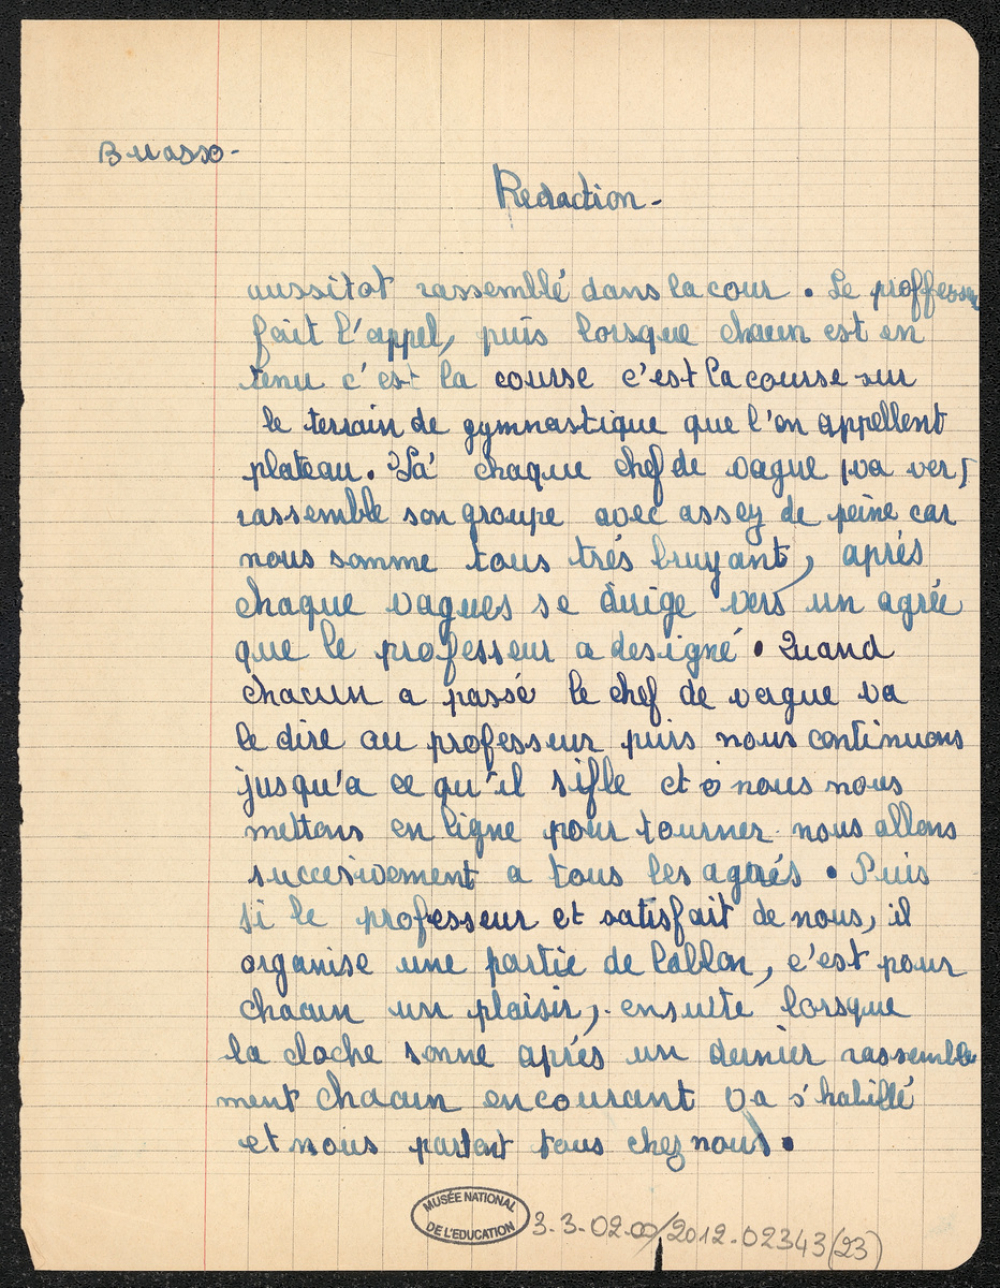 Buasso-
Redaction-
aussitot rassemblé dans la cour. Le proffesseur
fait l'appel, puis lorsque chacun est en
tenu c'est la course c'est la course sur
le terrain de gymnastique que l'on appellent
plateau. Là chaque chef de vague va vers
rassemble son groupe avec assez de peine car
nous somme tous trés bruyant, aprés
chaque vagues se dirige vers un agrée
que le professeur a designé. Quand
chacun a passé le chef de vague va
le dire au professeur puis nous continuons
jusqu'a ce qu'il sifle et nous nous
mettons en ligne pour tourner. nous allons
succesivement a tous les agrés. Puis
si le professeur et satisfait de nous, il
organise une partie de ballon, c'est pour
chacun un plaisir, ensuite lorsque
la cloche sonne aprés un dernier rassemble
ment chacun en courant va s'habillé
et nous partent tous chez nous.
MUSÉE NATIONAL
DE L'EDUCATION
3-3-02.00/2012-02343(23)